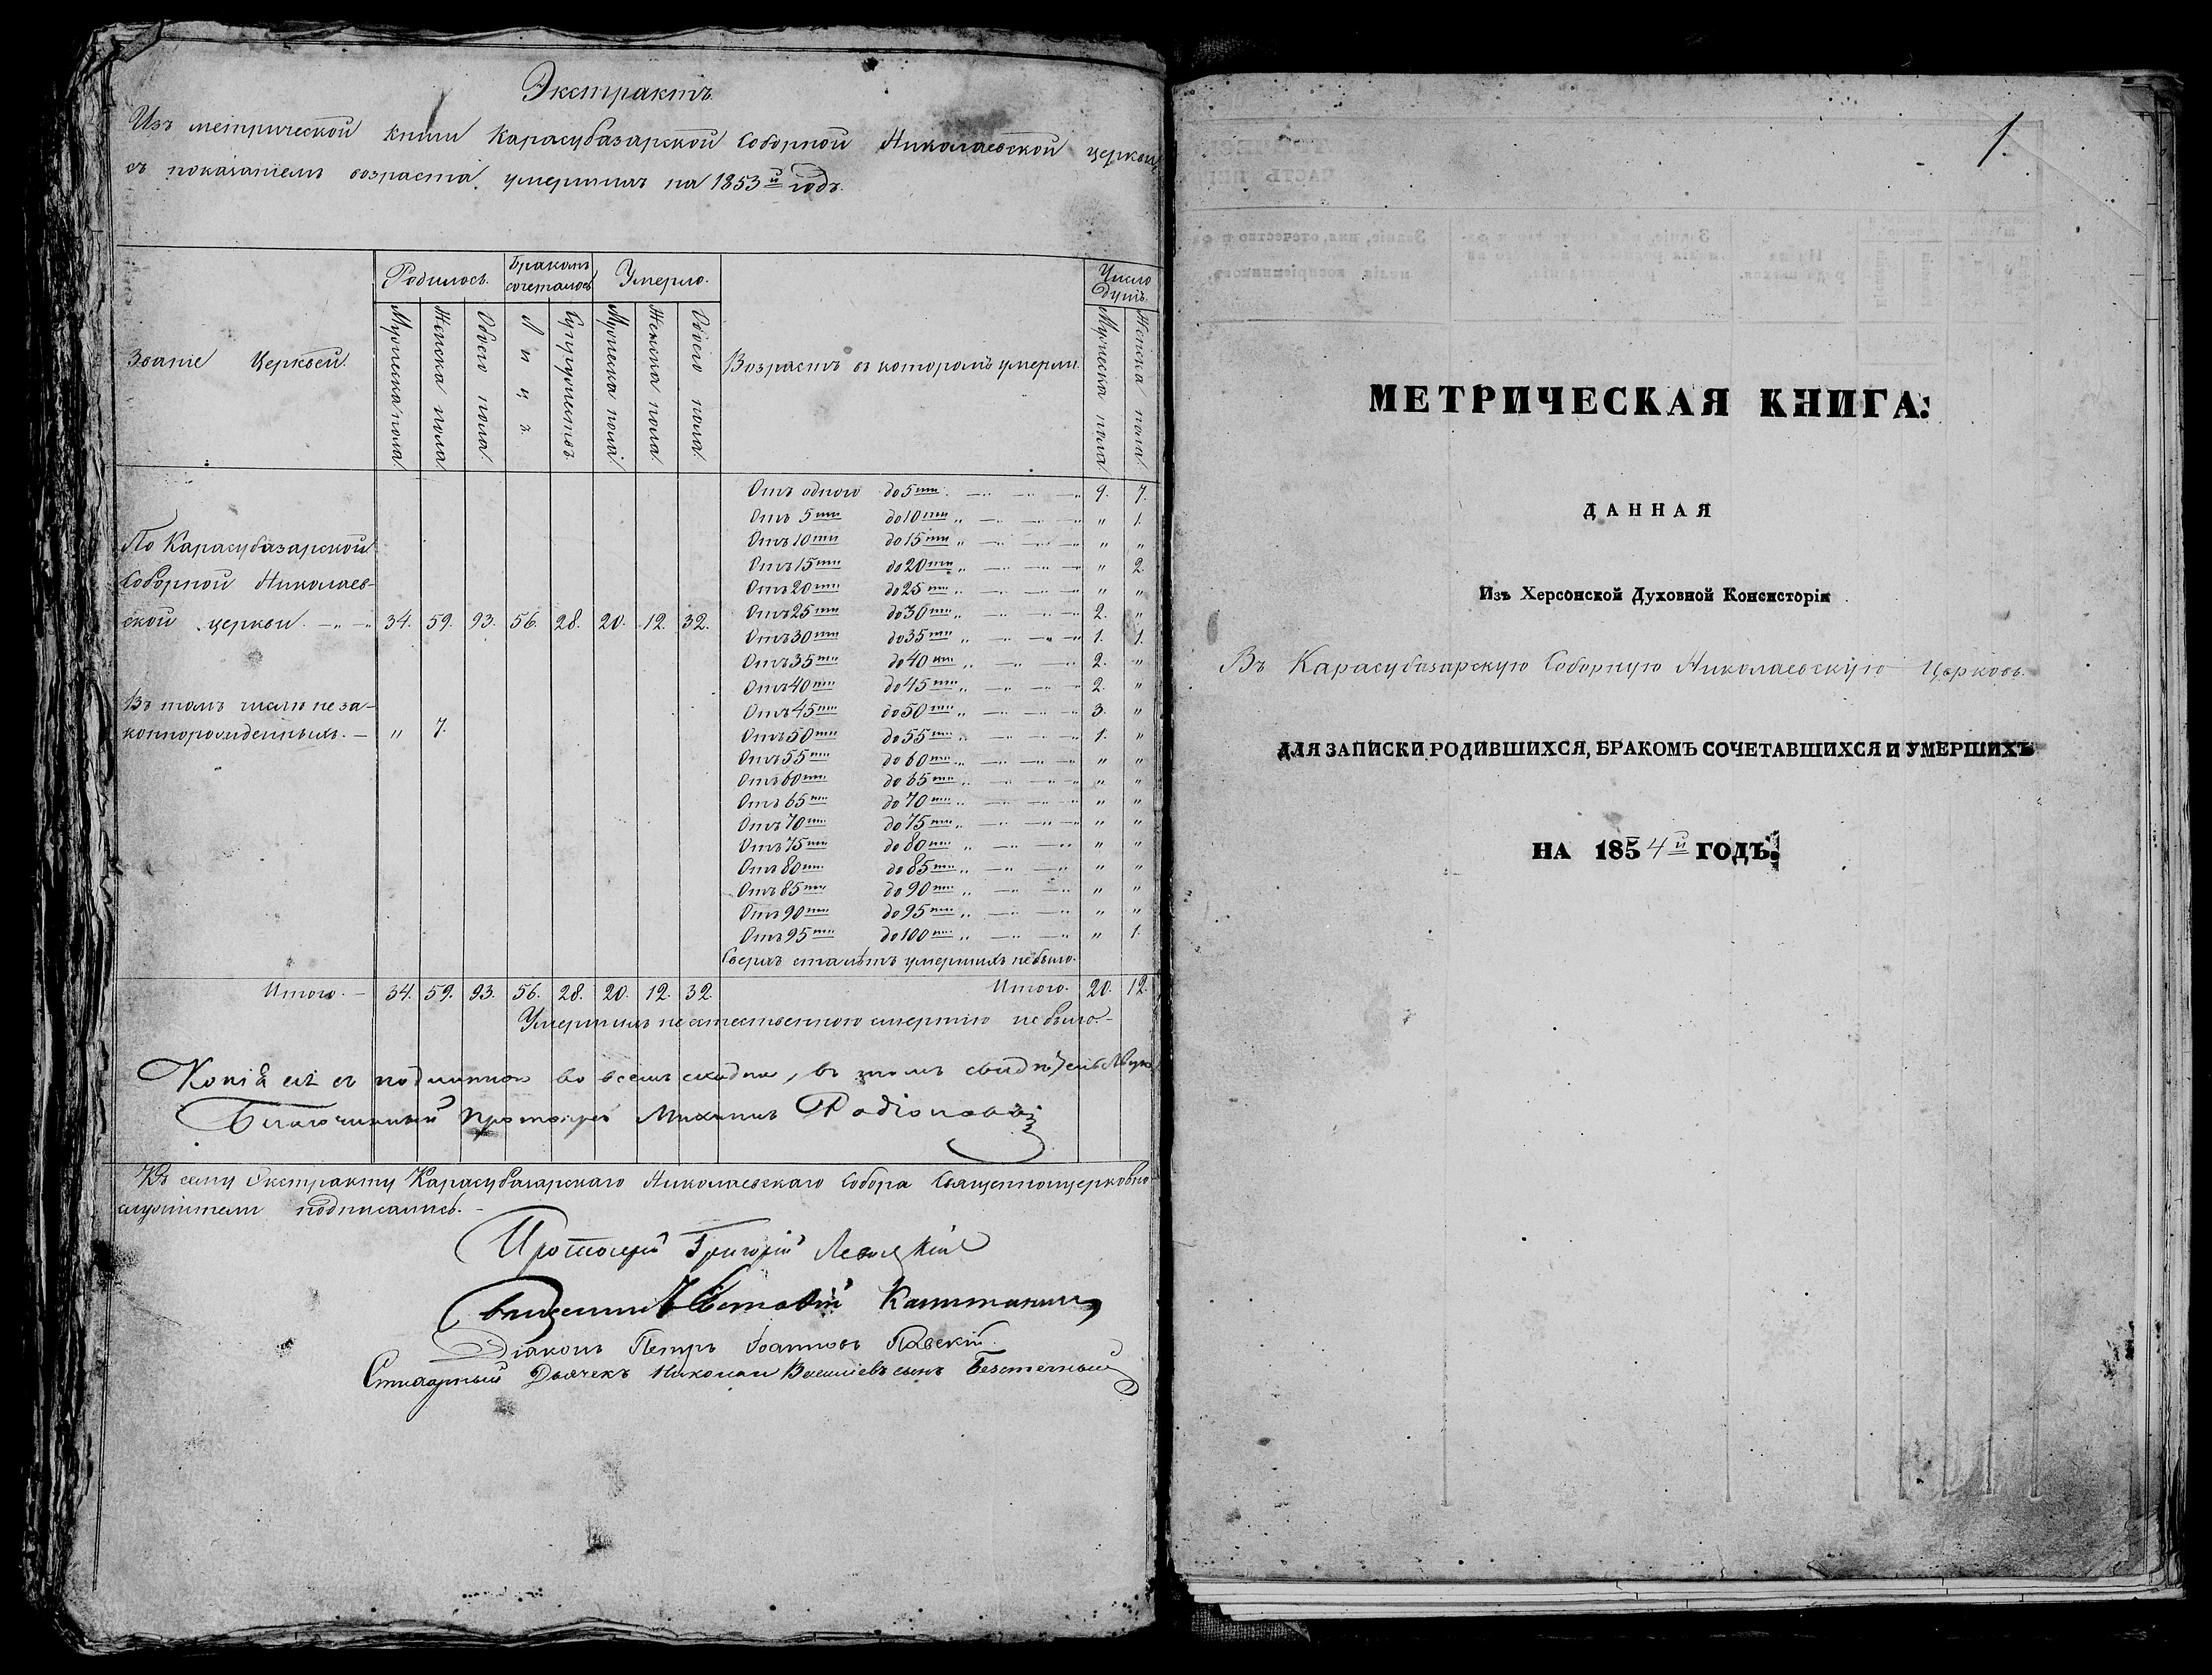 Экстрактъ
Изъ метрической книги Карасубазарской Соборной Николаевской церкви,
съ показаніемъ возраста умершихъ на 1853й годъ.
Званіе Церквей.
Родилось.
Бракомъ сочеталось
Умерло.
Возрастъ въ которомъ умерли.
Число Душъ.
Мужеска пола
Женска пола
Обоего пола
Лицъ.
Супружествъ
Мужеска пола
Женска пола
Обоего пола
Мужеска пола
Женска пола
По Карасубазарской
Соборной Николаев-
ской церкви. — „ — 34. 59. 93. 56. 28. 20. 12. 32.
Въ томъ числѣ неза-
коннорожденныхъ. — „ 7.
Отъ одного до 5ти. 9. 7.
Отъ 5ти до 10ти „ „ 1.
Отъ 10ти до 15ти „ „ „
Отъ 15ти до 20ти „ „ 2.
Отъ 20ти до 25ти „ „ „
Отъ 25ти до 30ти „ 2. „
Отъ 30ти до 35ти „ 1. 1.
Отъ 35ти до 40ти „ 2. „
Отъ 40ти до 45ти „ 2. „
Отъ 45ти до 50ти „ 3. „
Отъ 50ти до 55ти „ 1. „
Отъ 55ти до 60ти „ „ „
Отъ 60ти до 65ти „ „ „
Отъ 65ти до 70ти „ „ „
Отъ 70ти до 75ти „ „ „
Отъ 75ти до 80ти „ „ „
Отъ 80ти до 85ти „ „ „
Отъ 85ти до 90ти „ „ „
Отъ 90ти до 95ти „ „ „
Отъ 95ти до 100ти „ „ 1.
Сверхъ ста лѣтъ умершихъ небыло.
Итого. — 34. 59. 93. 56. 28. 20. 12. 32. Итого. 20. 12.
Умершихъ неестественною смертію небыло. —
Копія сія съ подлинною во всемъ сходна, въ томъ свидѣтельствую
Благочинный Протоіерей Михаилъ Родіоновъ
Къ сему Экстракту Карасубазарскаго Николаевскаго Собора Священноцерковно-
служители подписались. —
Протоіерей Григорій
Священникъ Евстафій
Діаконъ Петръ Іоанновъ
Стихарный Дьячекъ Николай Васильевъ сынъ
1.
МЕТРИЧЕСКАЯ КНИГА:
ДАННАЯ
Изъ Херсонской Духовной Консисторіи
Въ Карасубазарскую Соборную Николаевскую Церковь.
ДЛЯ ЗАПИСКИ РОДИВШИХСЯ, БРАКОМЪ СОЧЕТАВШИХСЯ И УМЕРШИХЪ
НА 1854й ГОДЪ.